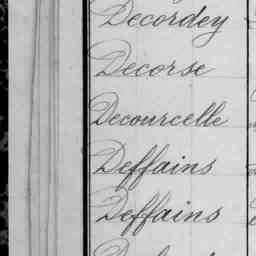 Decordey
Decorse
Decourcelle
Deffains
Deffains